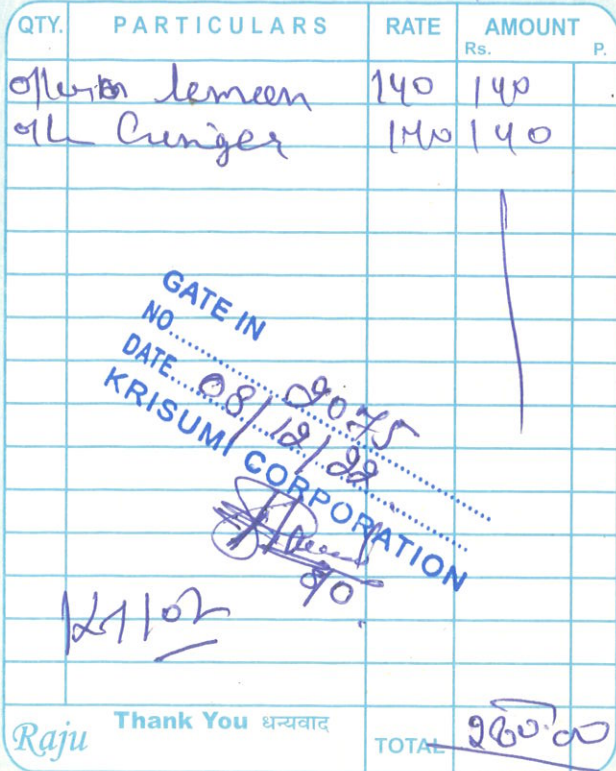 QTY. PARTICULARS RATE AMOUNT
Rs. P.
lemeen 140 140
Cringer 140 140
GATE IN
NO. 2075
DATE 08/12/22
KRISUMI CORPORATION
Thank You धन्यवाद
Raju TOTAL 280.00